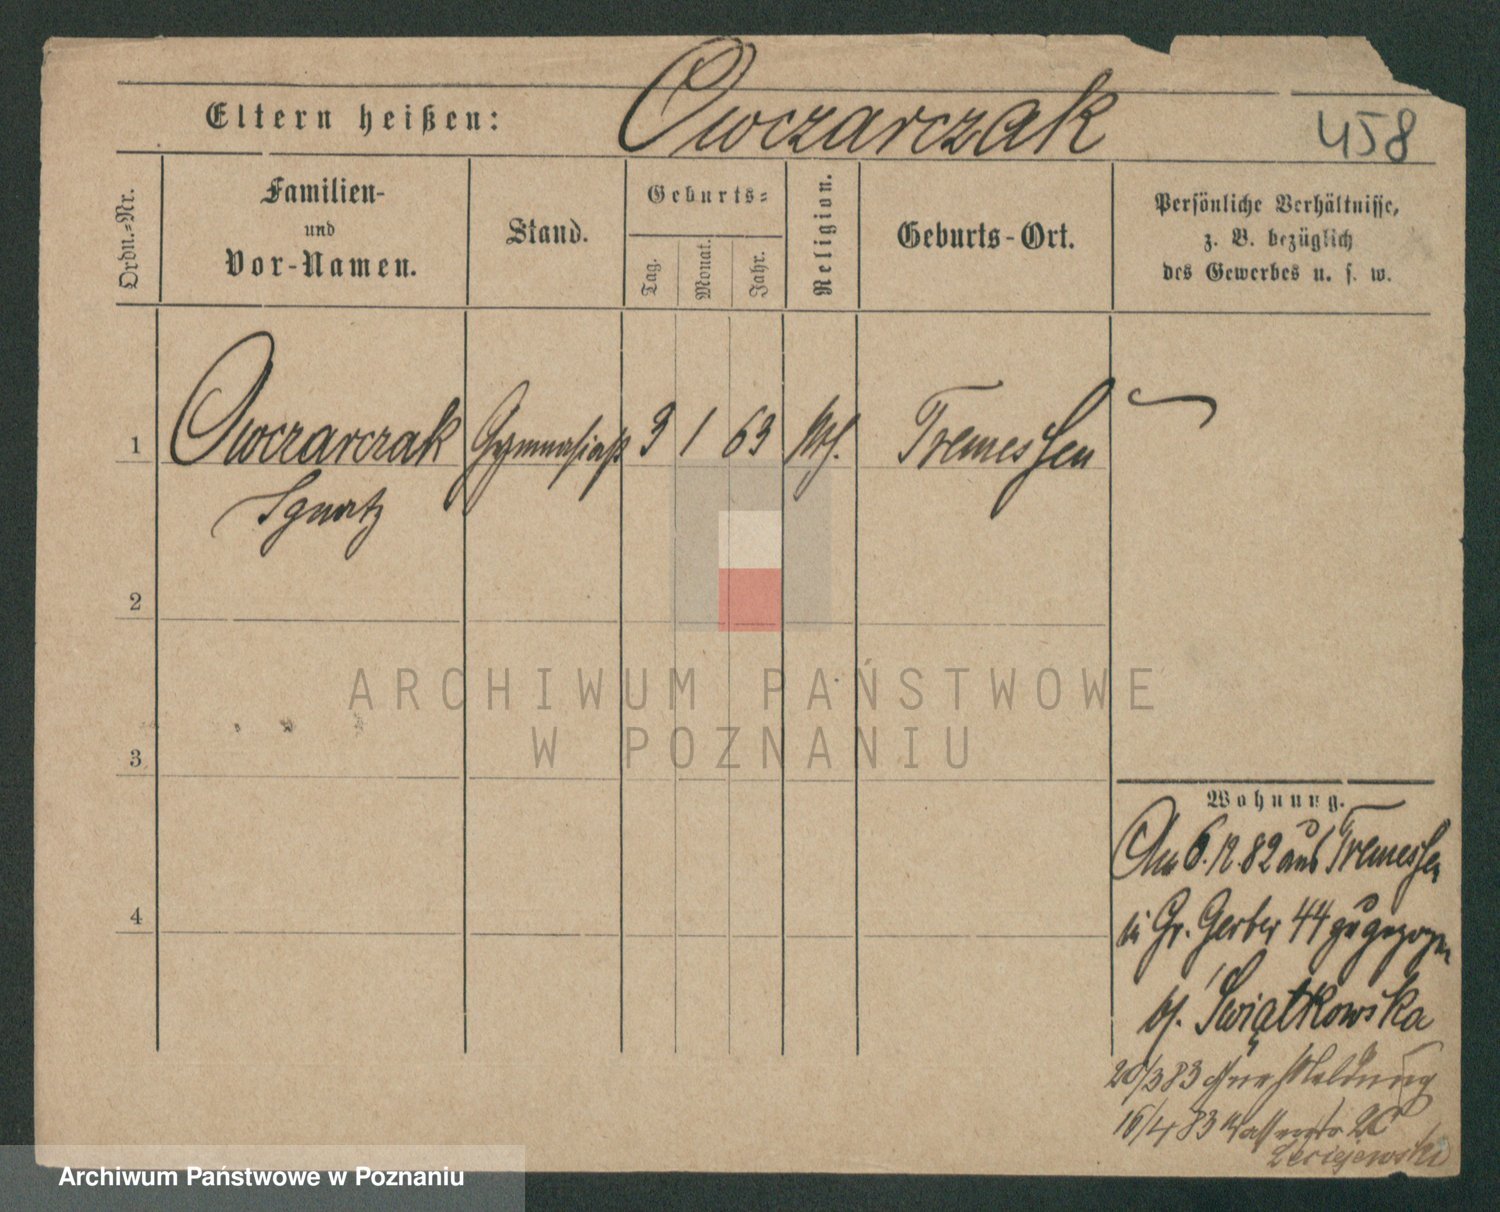 Eltern heißen: Owczarczak 458
Ordn.-Nr.
Familien-
und
Vor-Namen.
Stand.
Geburts-
Tag.
Monat.
Jahr.
Religion.
Geburts-Ort.
Persönliche Verhältnisse,
z. B. bezüglich
des Gewerbes u. s. w.
1 Owczarczak Gymnasiast 3 1 63 kth. Tremessen
Ignatz
2
3
4
Wohnung.
Am 6.12.82 aus Tremessen
in Gr. Gerber 44 zugezogen
bf. Świątkowska
20/3 83 ohne Meldung
16/4 83
Leciejewski
ARCHIWUM PAŃSTWOWE
W POZNANIU
Archiwum Państwowe w Poznaniu